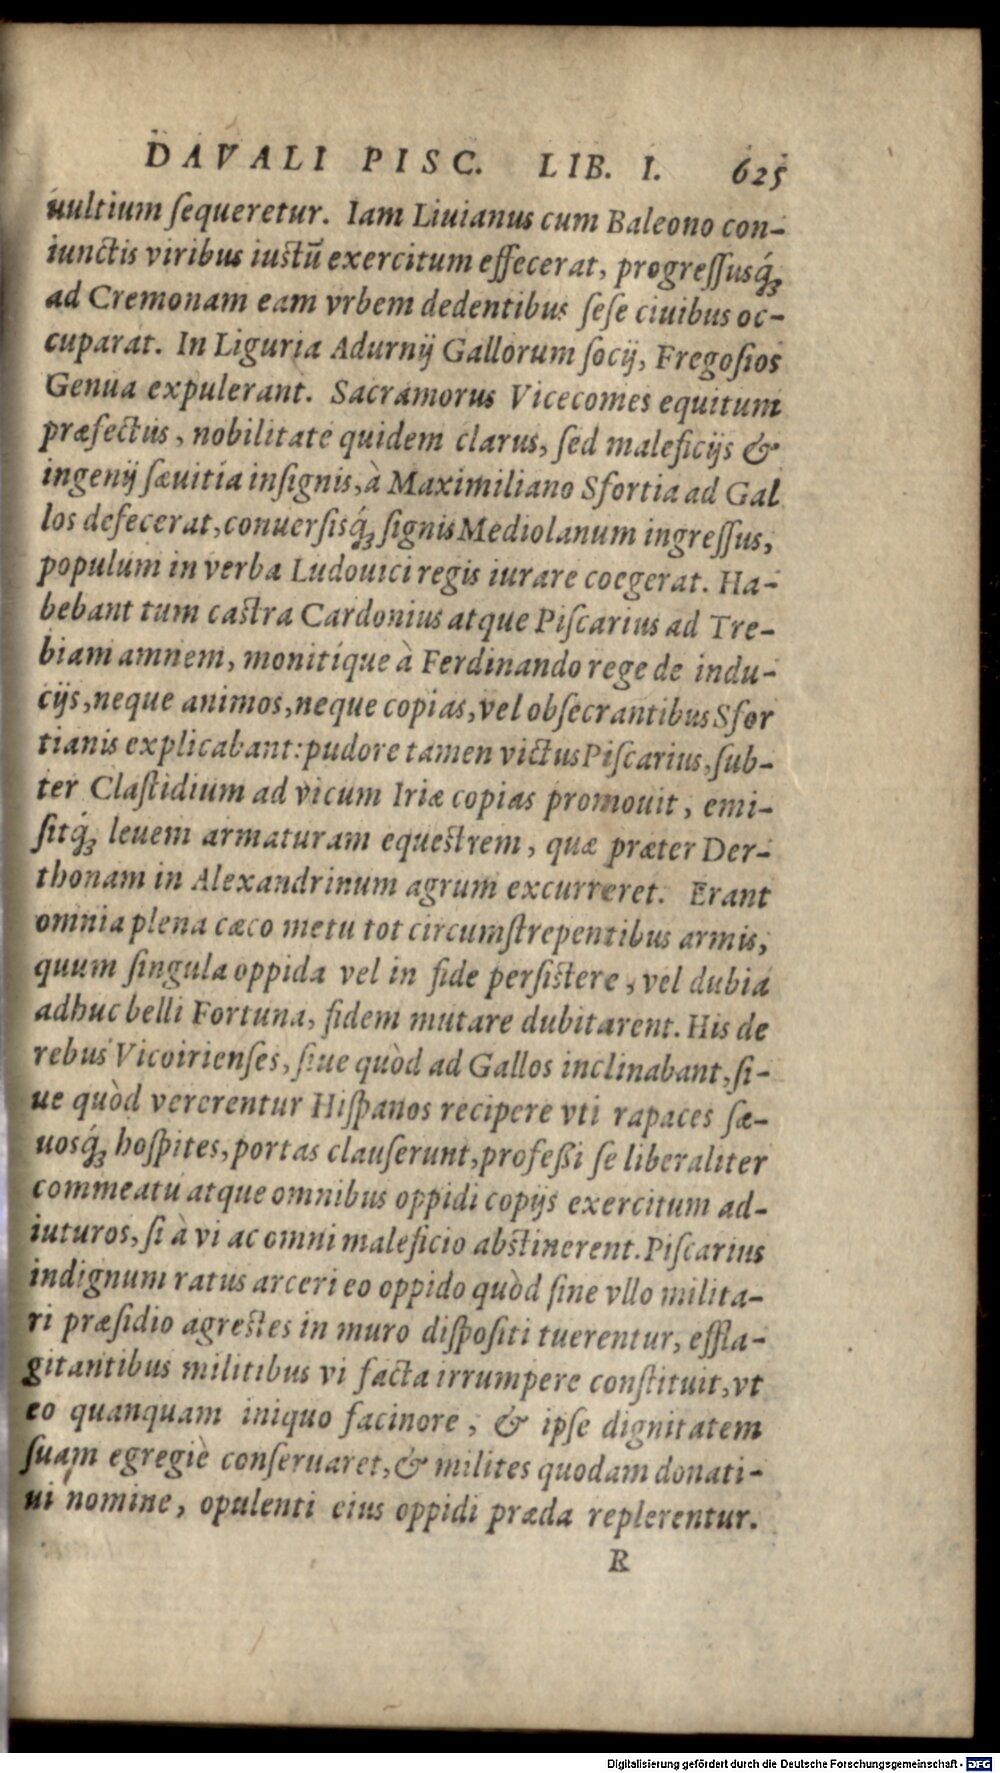 DAVALI PISC. LIB. I. 625
uultium ſequeretur. Iam Liuianus cum Baleono con-
iunctis viribus iustū exercitum effecerat, progreſſusq́ꝫ
ad Cremonam eam vrbem dedentibus ſeſe ciuibus oc-
cuparat. In Liguria Adurnij Gallorum ſocij, Fregoſios
Genua expulerant. Sacramorus Vicecomes equitum
præfectus, nobilitate quidem clarus, ſed maleficijs &
ingenij ſæuitia inſignis, à Maximiliano Sfortia ad Gal
los defecerat, conuerſisq́ꝫ ſignis Mediolanum ingreſſus,
populum in verba Ludouici regis iurare coegerat. Ha-
bebant tum caſtra Cardonius atque Piſcarius ad Tre-
biam amnem, monitíque à Ferdinando rege de indu-
cijs, neque animos, neque copias, vel obſecrantibus Sfor
tianis explicabant: pudore tamen victus Piſcarius, ſub-
ter Claſtidium ad vicum Iriæ copias promouit, emi-
ſitq́ꝫ leuem armaturam equeſtrem, quæ præter Der-
thonam in Alexandrinum agrum excurreret. Erant
omnia plena cæco metu tot circumſtrepentibus armis,
quum ſingula oppida vel in fide perſiſtere, vel dubia
adhuc belli Fortuna, fidem mutare dubitarent. His de
rebus Vicoirienſes, ſiue quòd ad Gallos inclinabant, ſi-
ue quòd vererentur Hiſpanos recipere vti rapaces ſæ-
uosq́ꝫ hoſpites, portas clauſerunt, profeßi ſe liberaliter
commeatu atque omnibus oppidi copijs exercitum ad-
iuturos, ſi à vi ac omni maleficio abſtinerent. Piſcarius
indignum ratus arceri eo oppido quòd ſine vllo milita-
ri præſidio agreſtes in muro diſpoſiti tuerentur, effla-
gitantibus militibus vi facta irrumpere conſtituit, vt
eo quanquam iniquo facinore, & ipſe dignitatem
ſuam egregiè conſeruaret, & milites quodam donati-
ui nomine, opulenti eius oppidi præda replerentur.
R
Digitalisierung gefördert durch die Deutsche Forschungsgemeinschaft - DFG